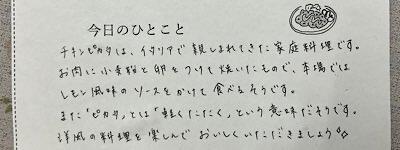 今日のひとこと
チキンピカタは、イタリアで親しまれてきた家庭料理です。
お肉に小麦粉と卵をつけて焼いたもので、本場では
レモン風味のソースをかけて食べるそうです。
また「ピカタ」とは「軽くたたく」という意味だそうです。
洋風の料理を楽しんでおいしくいただきましょう